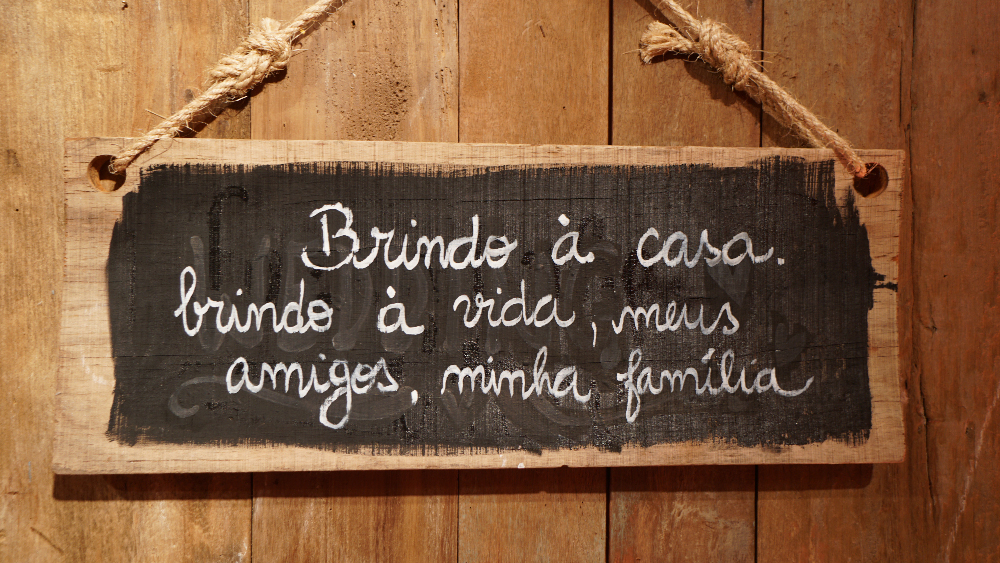 Brindo à casa.
brindo à vida, meus
amigos, minha família